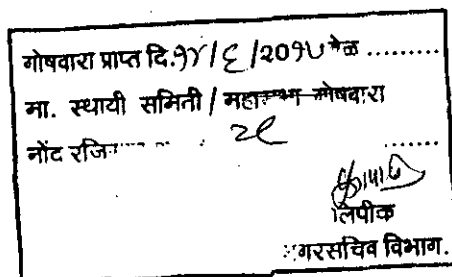 गोषवारा प्राप्त दि.१४/६/२०१५ वेळ .........
मा. स्थायी समिती / महासभा गोषवारा
नोंद रजि २९ .......
लिपीक
नगरसचिव विभाग.